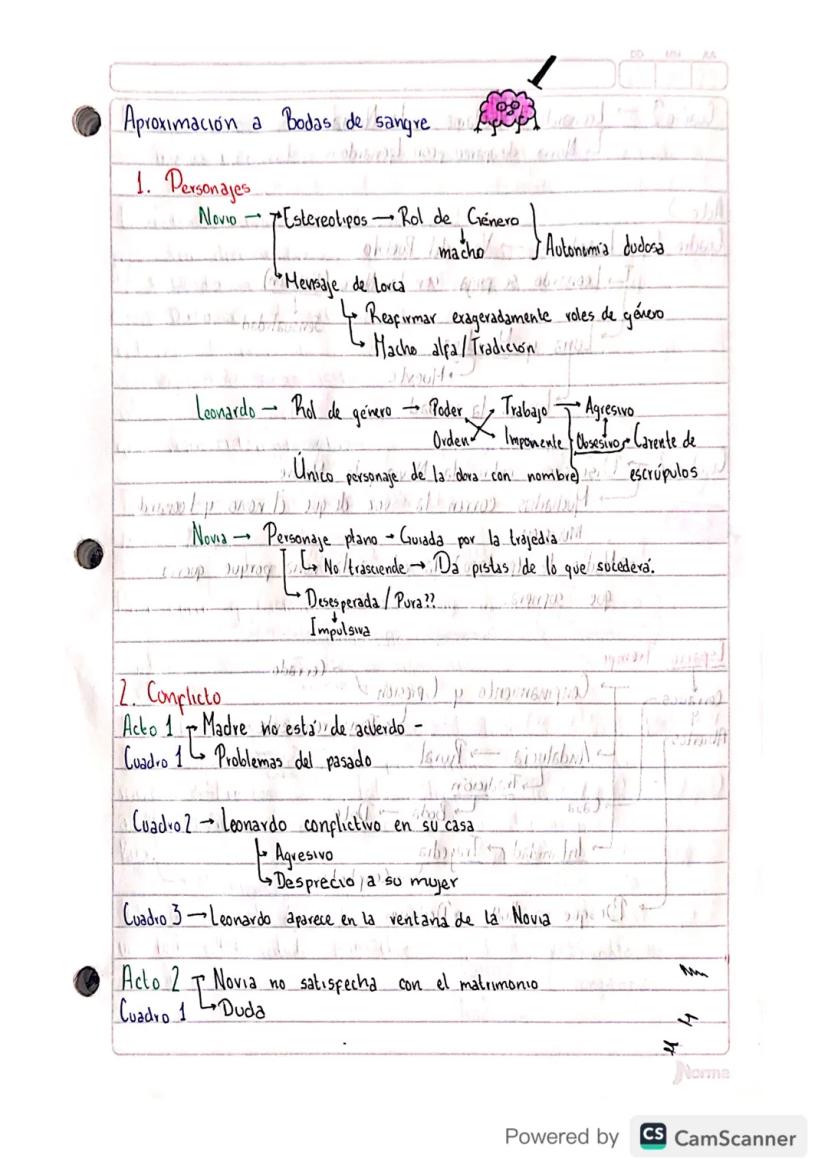 DD MM AA
Aproximación a Bodas de sangre
1. Personajes
Novio → Estereotipos → Rol de Género
macho
Autonomía dudosa
Mensaje de Lorca
↳ Reafirmar exageradamente roles de género
↳ Macho alfa / Tradición
Leonardo → Rol de género → Poder Trabajo → Agresivo
Orden Imponente Obsesivo → Carente de
Único personaje de la obra con nombre escrúpulos
Novia → Personaje plano → Guiada por la trajedia
↳ No trasciende → Da pistas de lo que sucederá.
↳ Desesperada / Pura??
Impulsiva
2. Conflicto
Acto 1 → Madre no está de acuerdo -
Cuadro 1 ↳ Problemas del pasado
Cuadro 2 → Leonardo conflictivo en su casa
↳ Agresivo
↳ Desprecio a su mujer
Cuadro 3 → Leonardo aparece en la ventana de la Novia
Acto 2 → Novia no satisfecha con el matrimonio
Cuadro 1 ↳ Duda
Norma
Powered by CS CamScanner